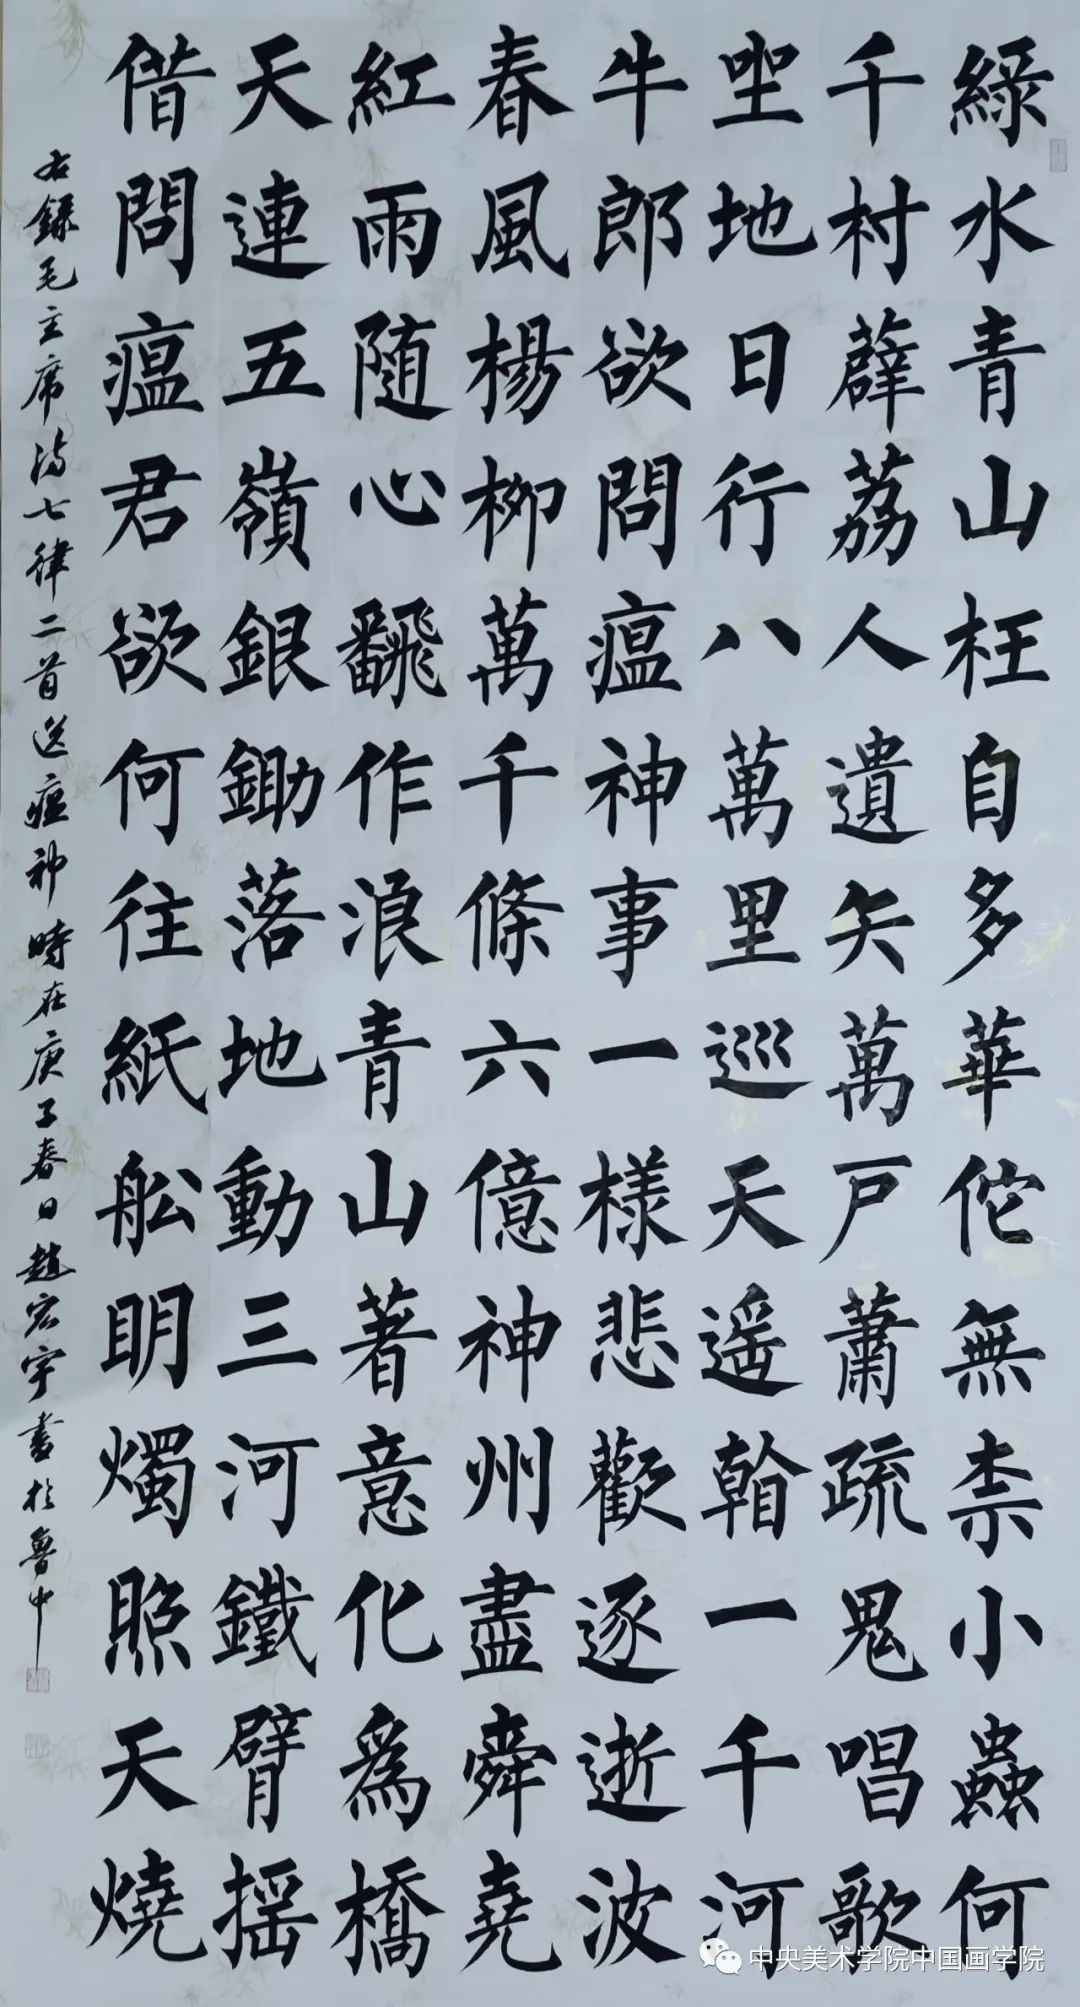 綠水青山枉自多華佗無柰小蟲何
千村薜荔人遺矢萬戶蕭疏鬼唱歌
坐地日行八萬里巡天遥看一千河
牛郎欲問瘟神事一樣悲歡逐逝波
春風楊柳萬千條六億神州盡舜堯
紅雨随心飜作浪青山著意化為橋
天連五嶺銀鋤落地動三河鐵臂摇
借問瘟君欲何往紙船明燭照天燒
右錄毛主席詩七律二首送瘟神時在庚子春日趙宏宇書於魯中
中央美术学院中国画学院